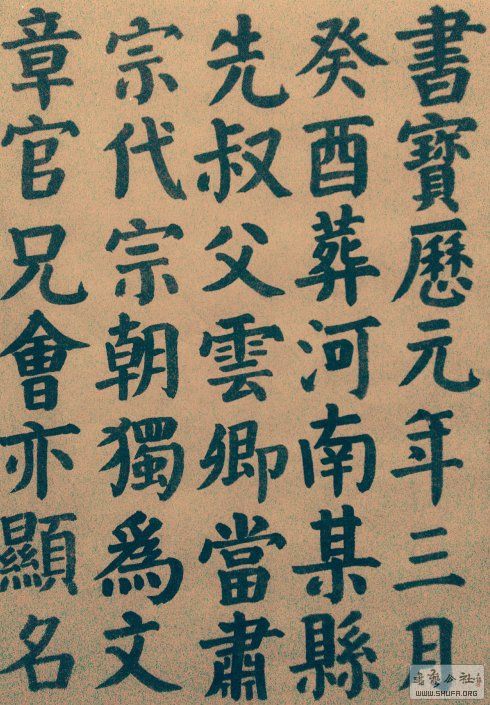 書寶曆元年三月
癸酉葬河南某縣
先叔父雲卿當肅
宗代宗朝獨爲文
章官兄會亦顯名
書藝公社
WWW.SHUFA.ORG